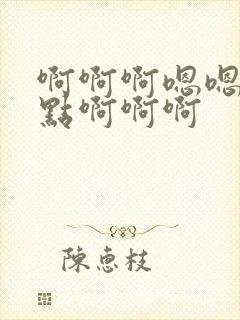 啊啊啊嗯嗯
點啊啊啊
陳惠枝